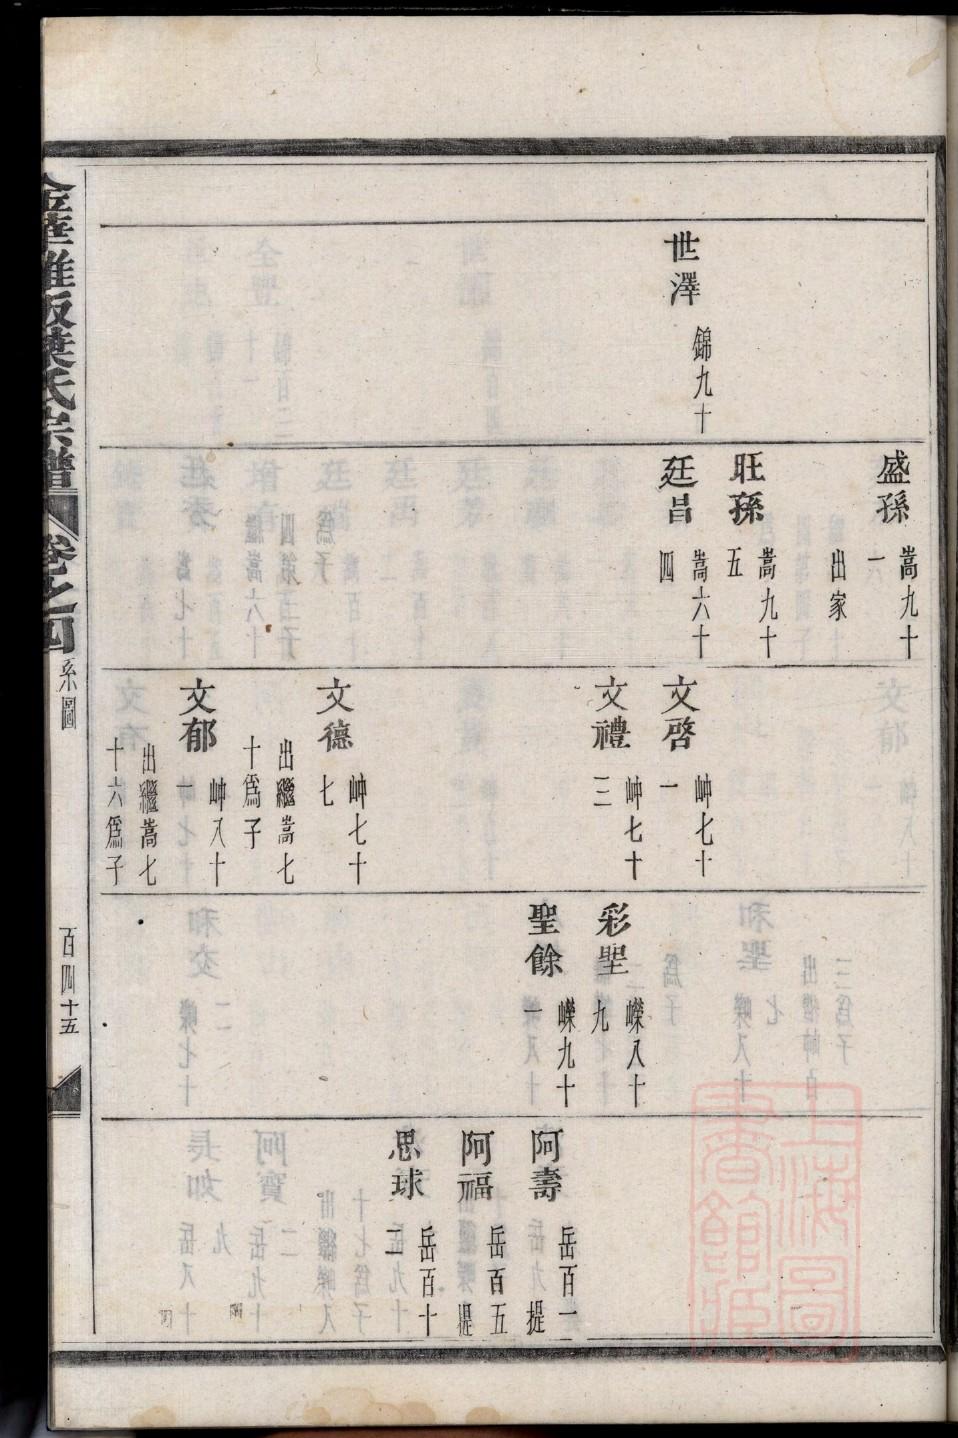 世澤 錦九十
盛孫 嵩九十一
出家
旺孫 嵩九十五
廷昌 嵩六十四
文啓 岫七十一
文禮 岫七十三
文德 岫七十七
出繼嵩七十爲子
文郁 岫八十一
出繼嵩七十六爲子
彩聖 嶸八十九
聖餘 嶸九十一
阿壽 岳百一 提
阿福 岳百五 提
思球 岳百十二
葉氏宗譜 卷之四 系圖 百四十五
上海圖書館藏